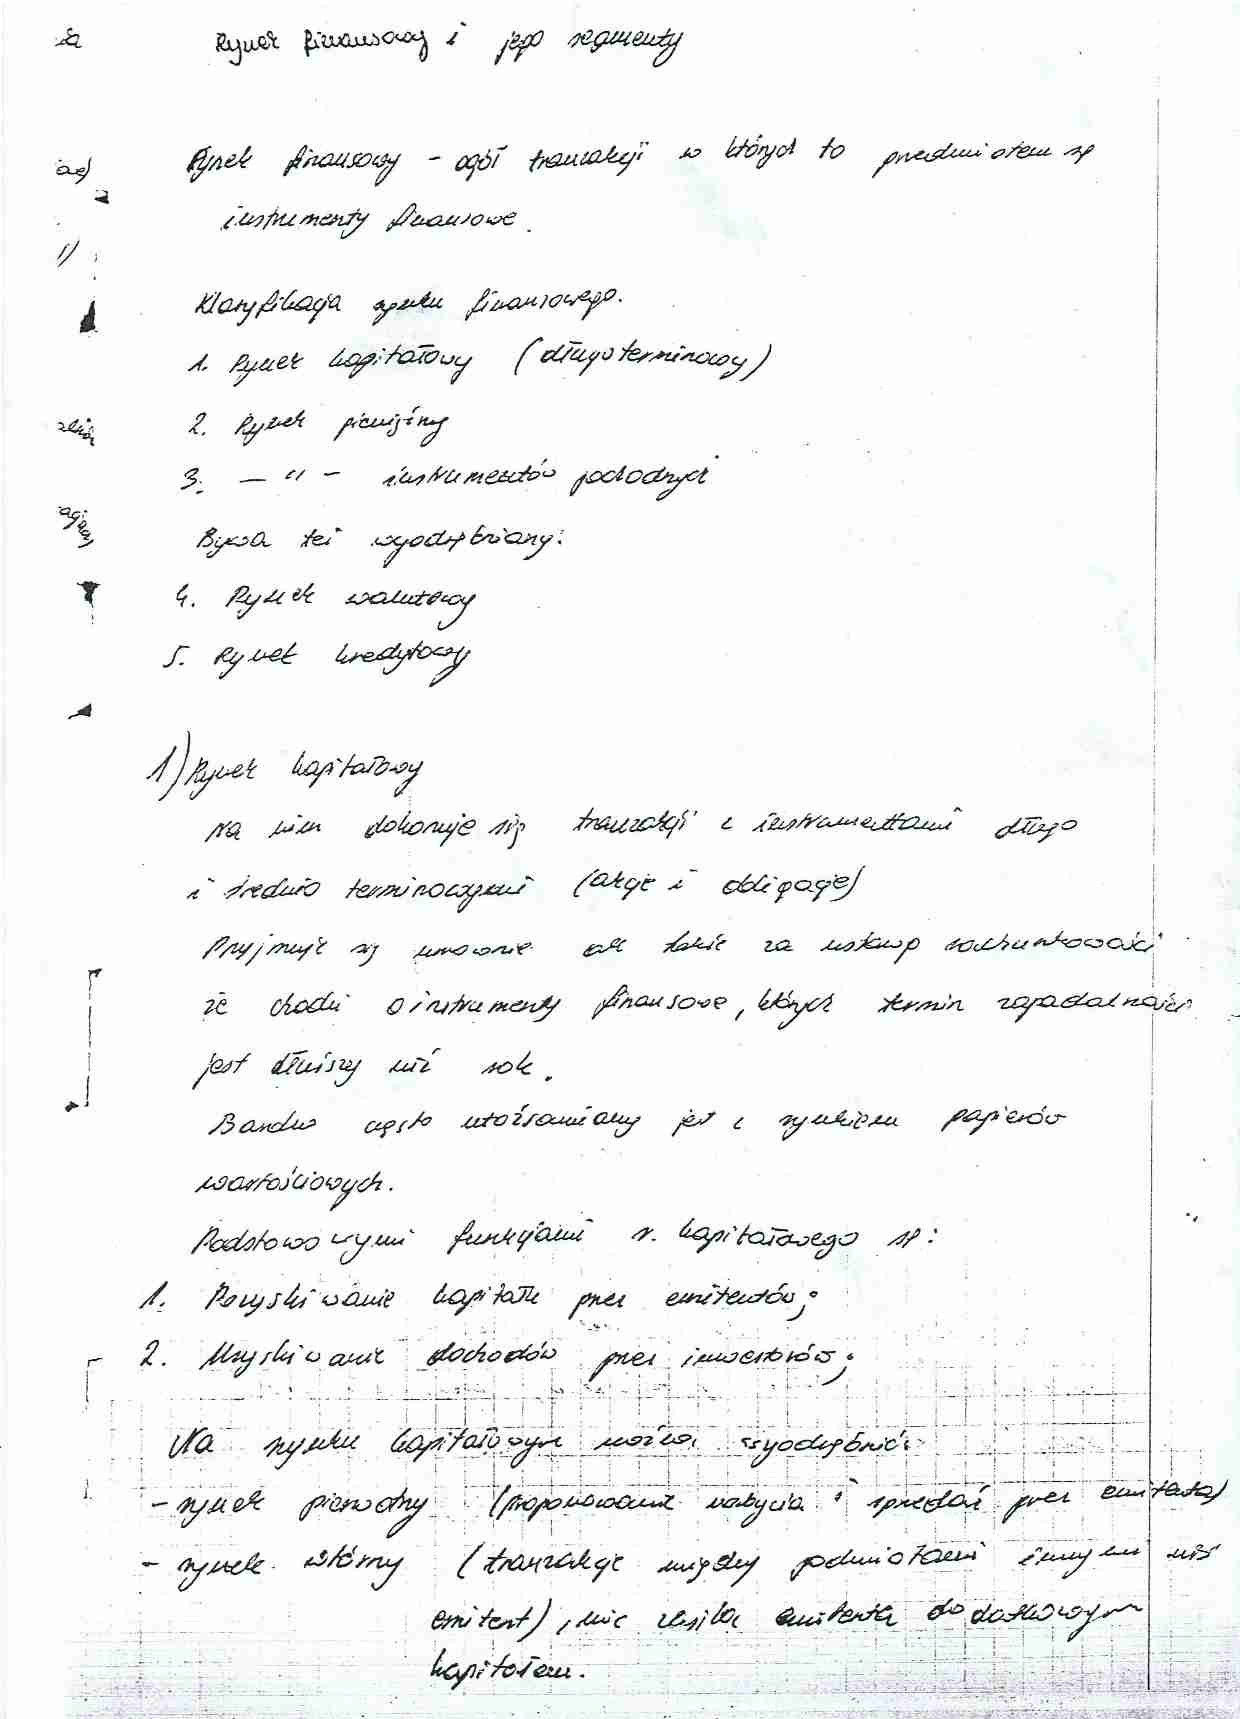 Rynek finansowy i jego segmenty
Rynek finansowy - ogół tranzakcji w których to przedmiotem są
instrumenty finansowe.
Klasyfikacja rynku finansowego.
1. Rynek kapitałowy (długoterminowy)
2. Rynek pieniężny
3. — " — instrumentów pochodnych
Bywa też wyodrębniany:
4. Rynek walutowy
5. Rynek kredytowy
1) Rynek kapitałowy
Na nim dokonuje się tranzakcji z instrumentami długo
i średnio terminowymi (akcje i obligacje)
Przyjmuje się umownie ale także za ustawą rachunkowości
że chodzi o instrumenty finansowe, których termin zapadalności
jest dłuższy niż rok.
Bardzo często utożsamiany jest z rynkiem papierów
wartościowych.
Podstawowymi funkcjami r. kapitałowego są:
1. Pozyskiwanie kapitału przez emitentów;
2. Uzyskiwanie dochodów przez inwestorów;
Na rynku kapitałowym można wyodrębnić:
- rynek pierwotny (proponowanie nabycia i sprzedaż przez emitenta)
- rynek wtórny (tranzakcje między podmiotami innymi niż
emitent), nie zasila emitenta dodatkowym
kapitałem.